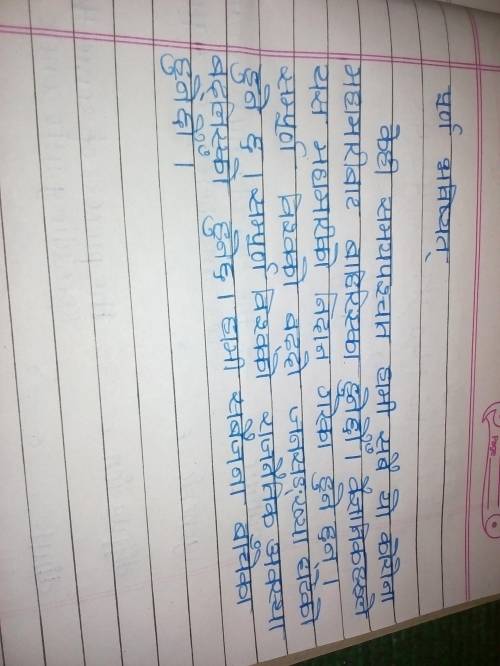 पुर्ण भविष्यत्
केही समयपश्चात हामी सबै यो कोरोना
महामारीबाट बाहिरिएका हुनेछौँ। वैज्ञानिकहरूले
यस महामारीको निदान गरेका हुने छन्।
सम्पुर्ण विश्वको बढ्दो जनसङ्ख्या घटेको
हुने छ। सम्पुर्ण विश्वको राजनैतिक अवस्था
बदलिएको हुनेछ। हामी सबैजना बाँचेका
हुनेछौँ।
Page: